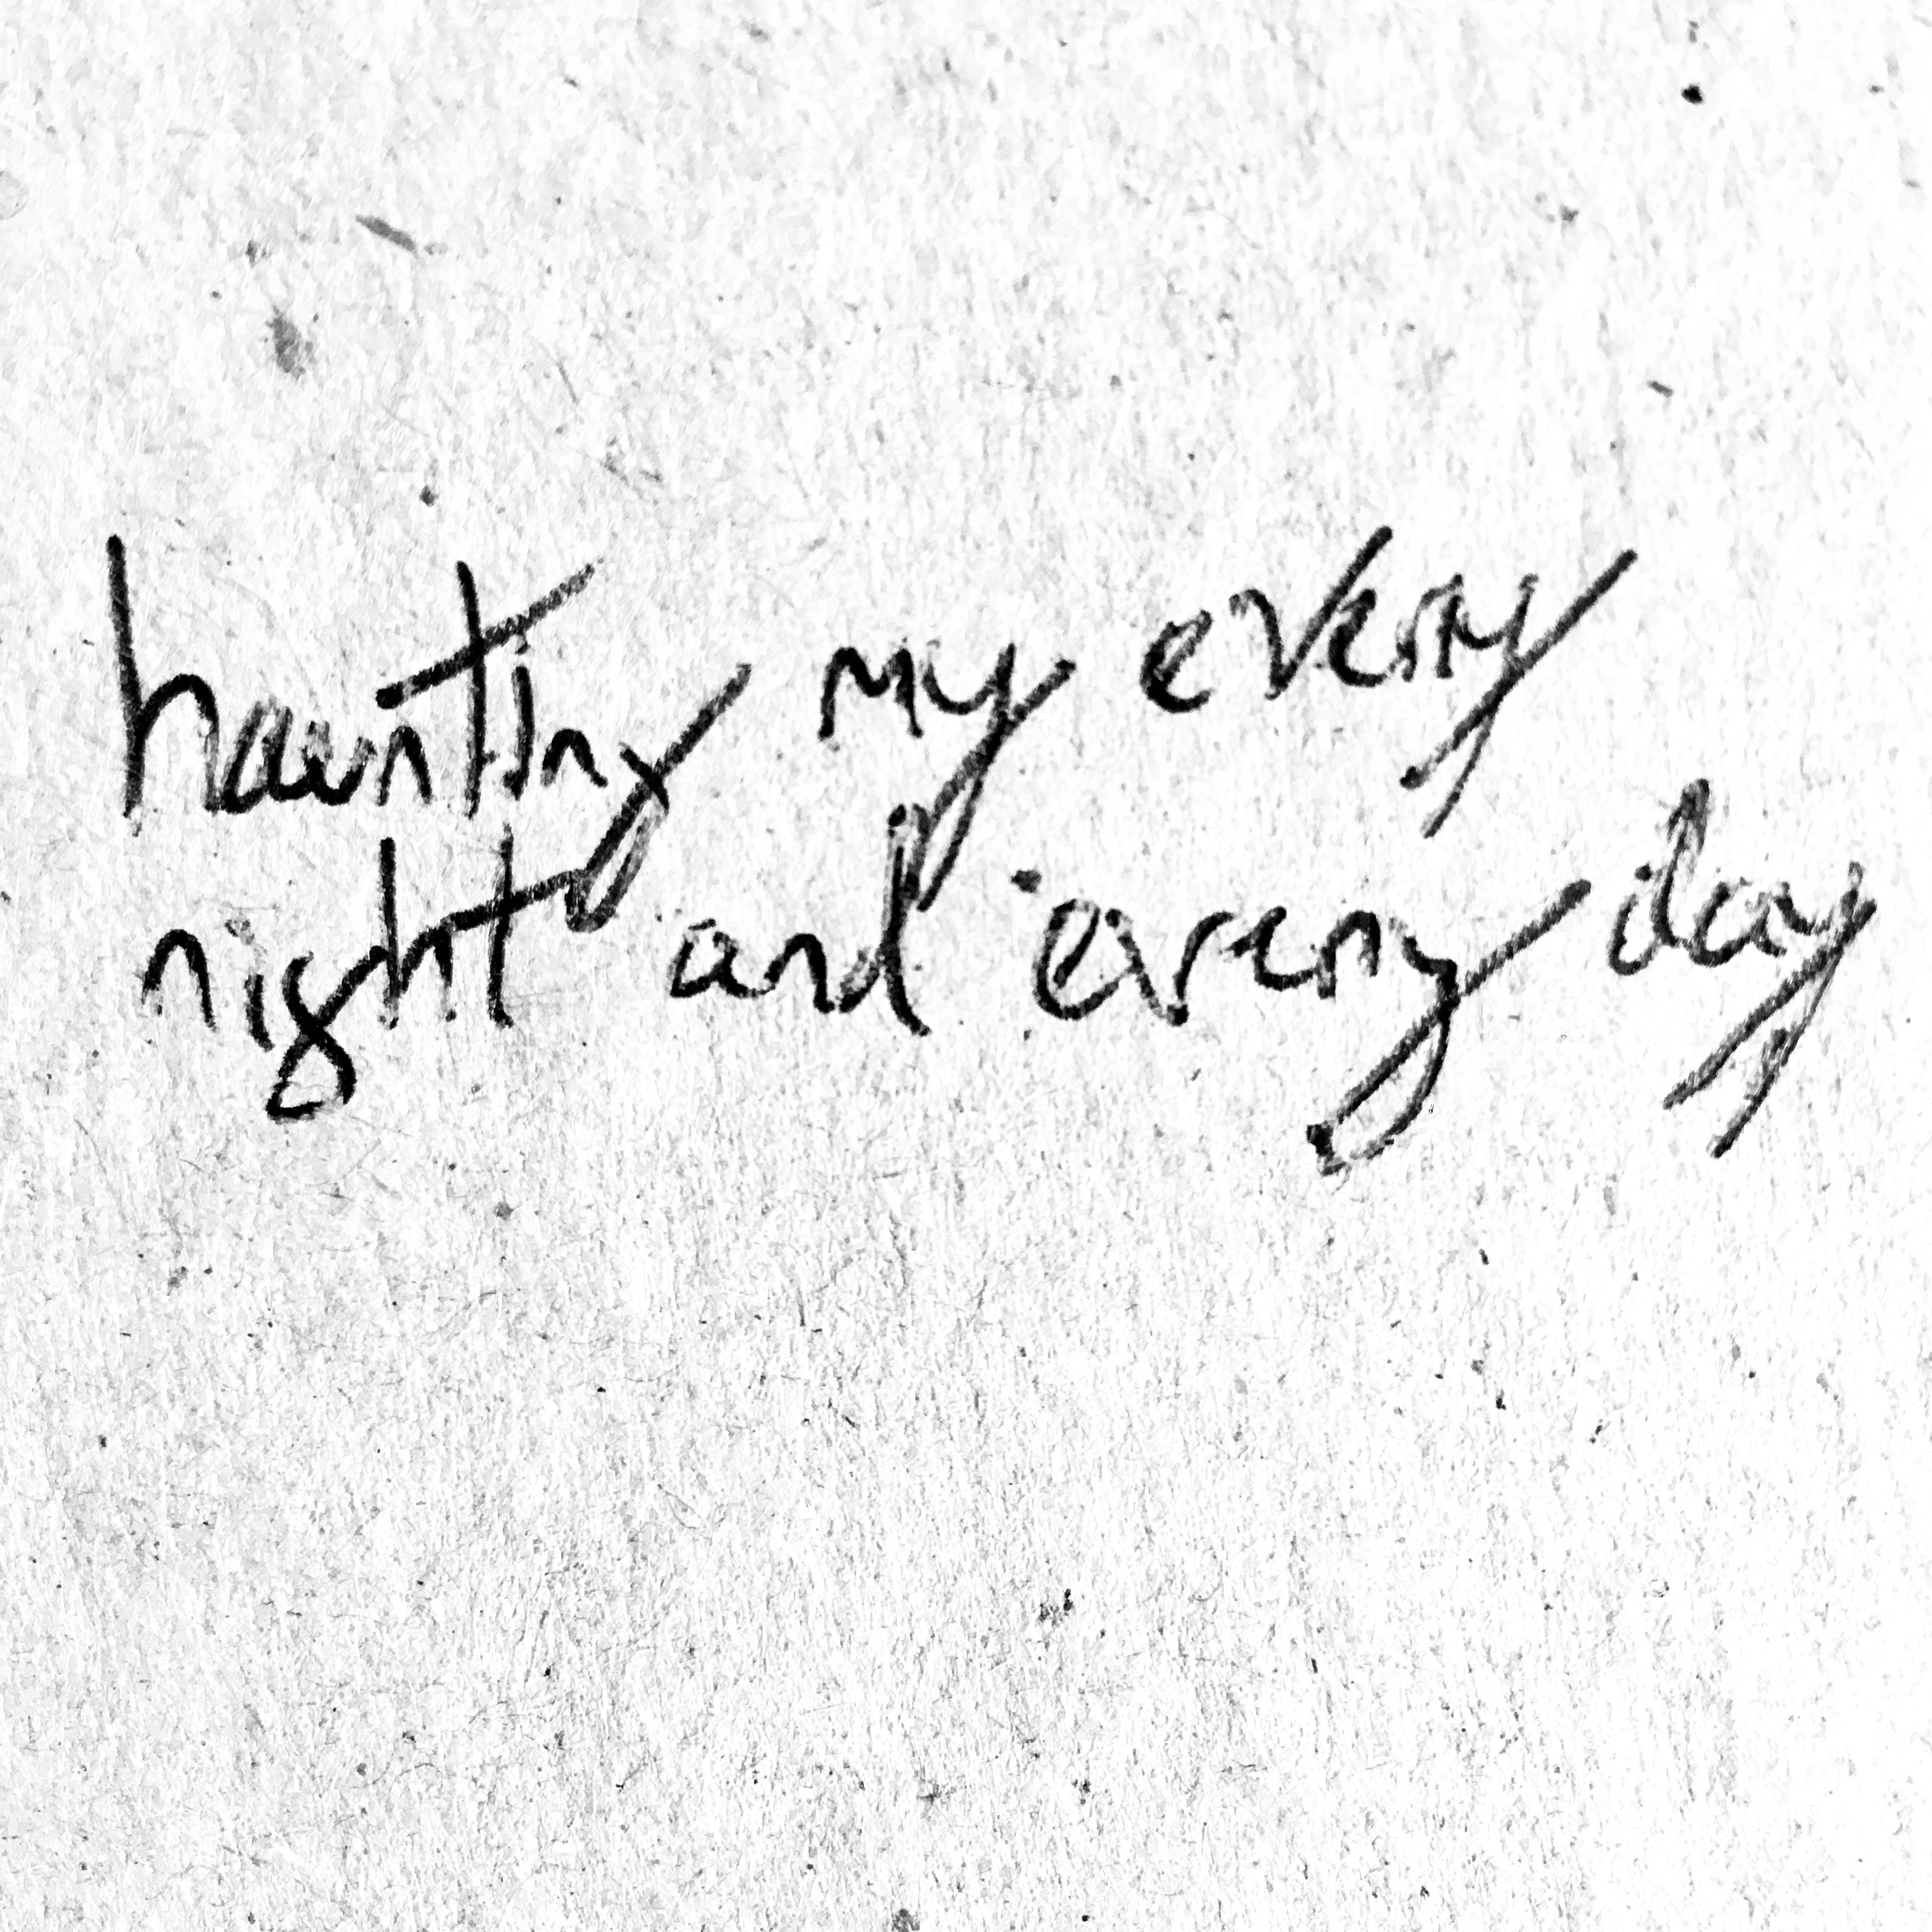 haunting my every
night and every day